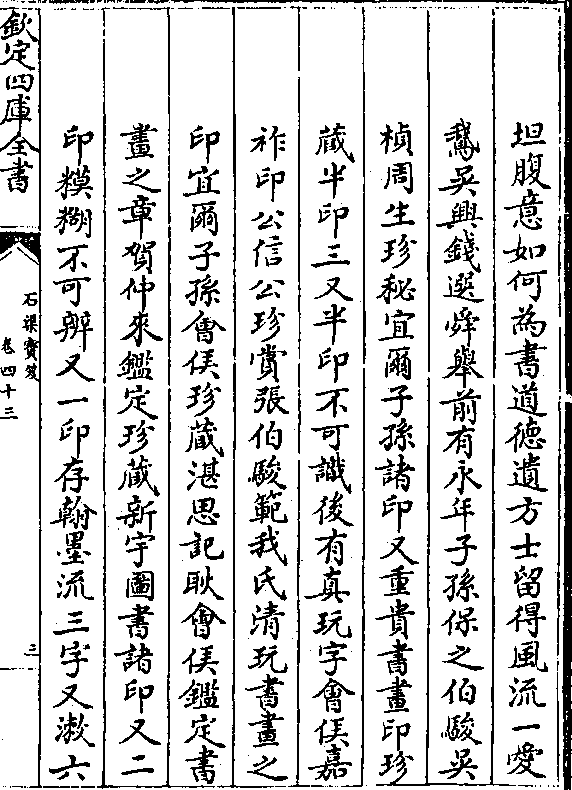 坦腹意如何為書道德遺方士留得風流一愛
鵞吳興錢選舜舉前有永年子孫保之伯駿吳
楨周生珍秘宜爾子孫諸印又重貴書畫印珍
蔵半印三又半印不可識後有真玩字會侯嘉
祚印公信公珍賞張伯駿範我氏清玩書畫之
印宜爾子孫會侯珍蔵湛思記耿會侯鑑定書
畫之章賀仲來鑑定珍蔵新宇圖書諸印又二
印糢糊不可辨又一印存翰墨流三字又漱六
欽定四庫全書
石渠寳笈
卷四十三
三